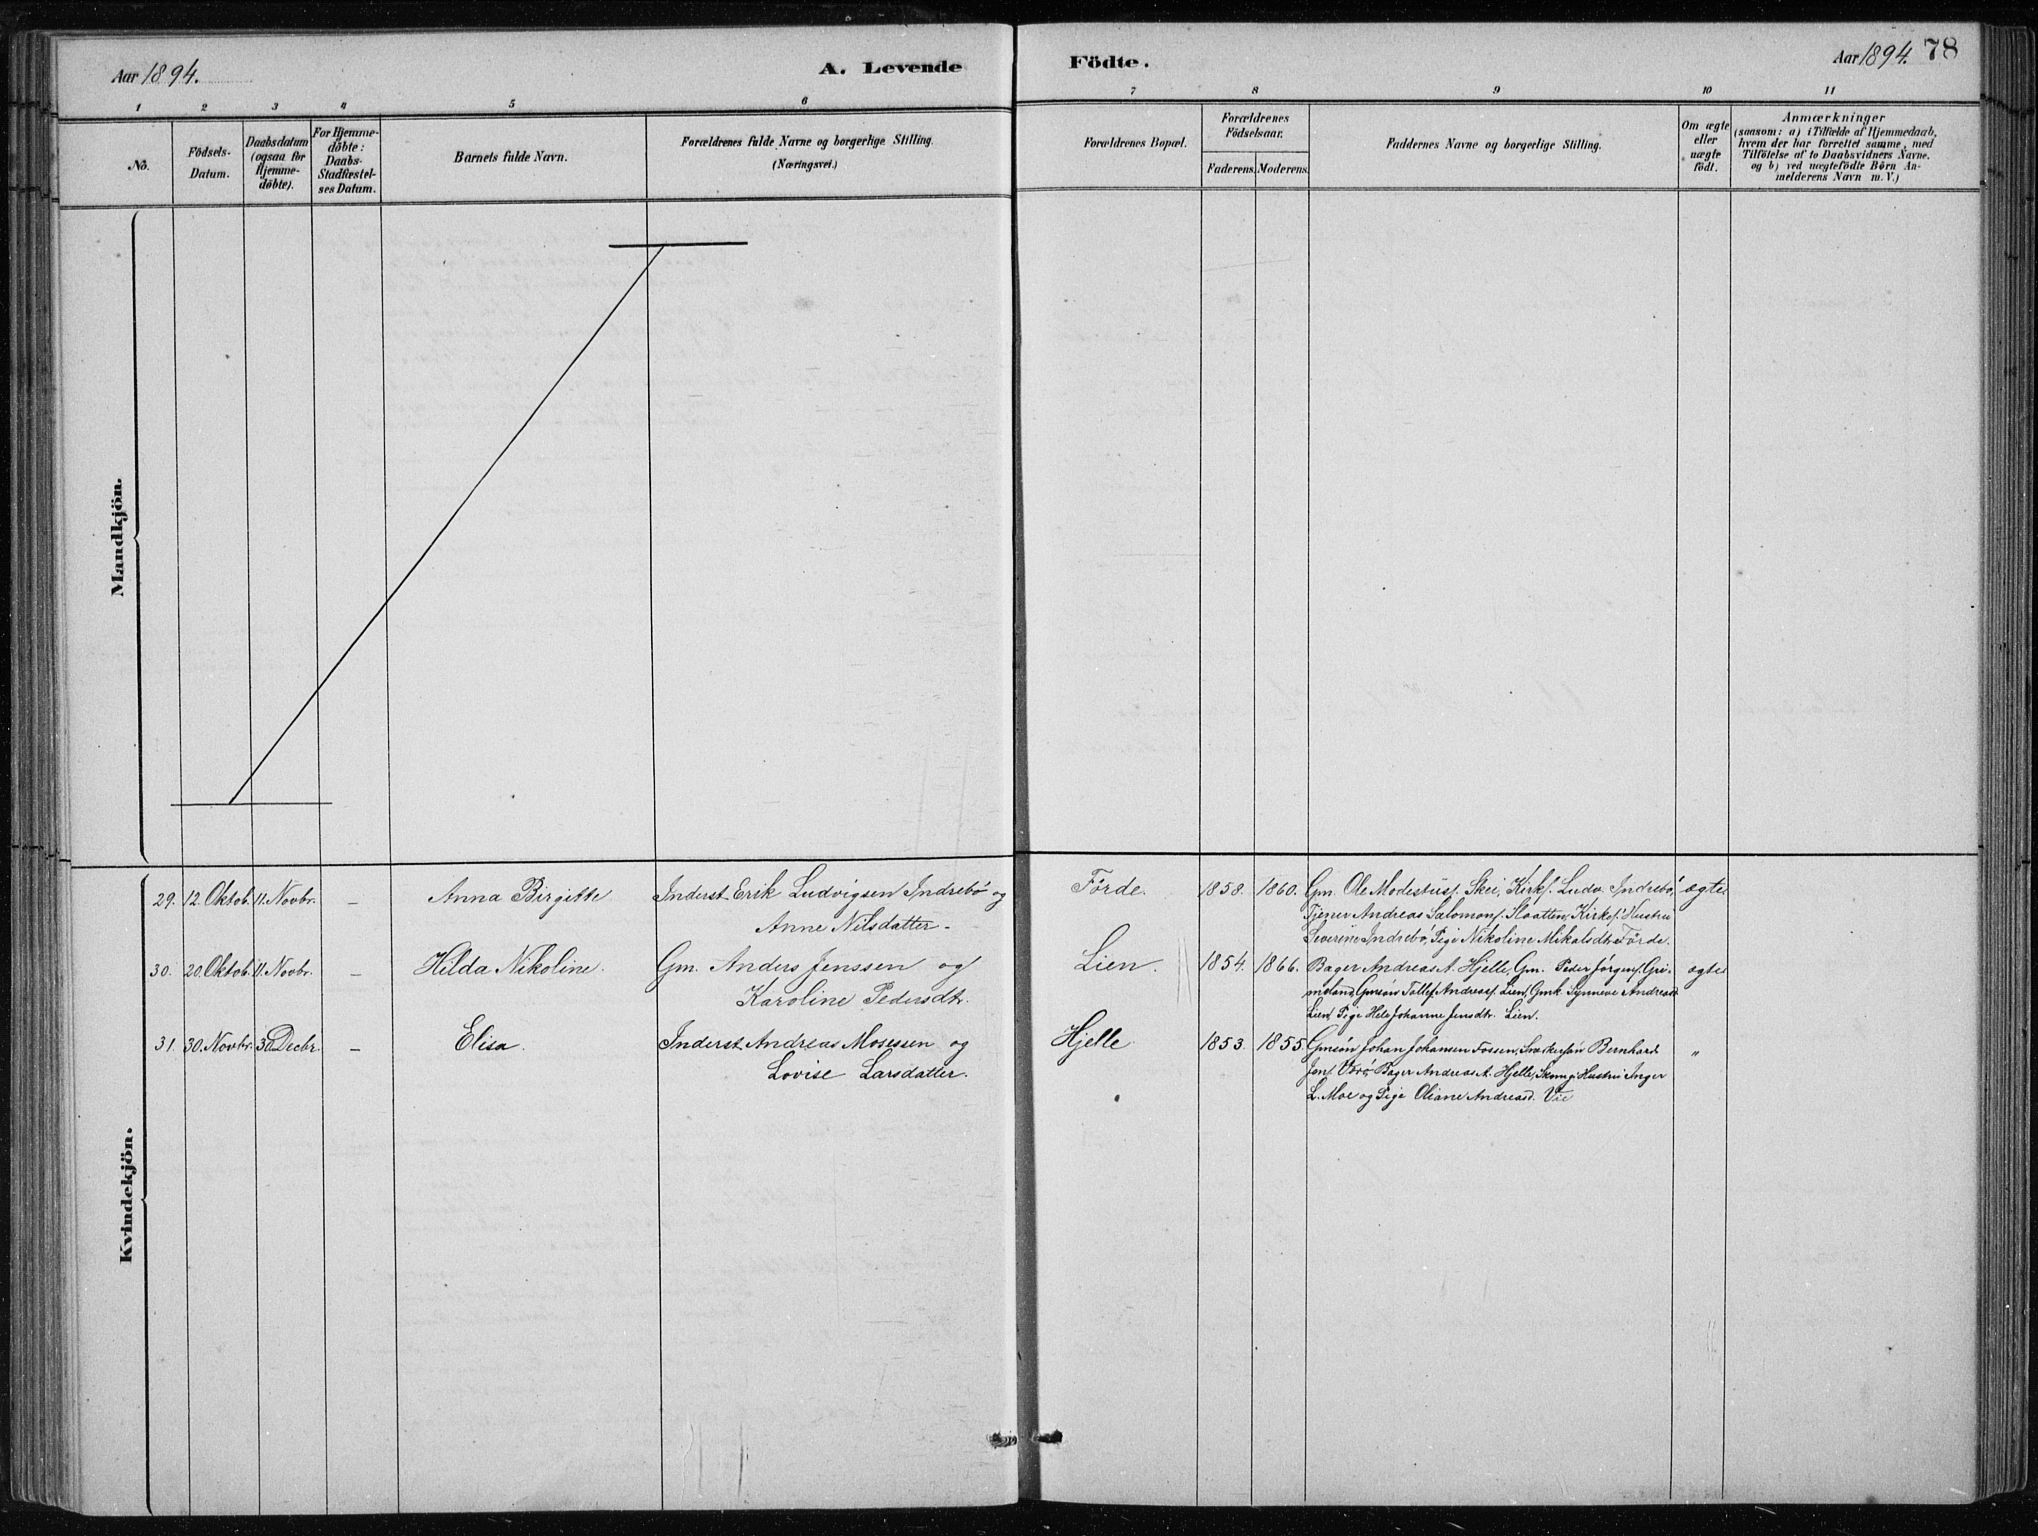 Aar 1894.
A. Levende
Födte.
Aar 1894. 78
1 2 3 4 5 6 7 8 9 10 11
No.
Födsels-
Datum.
Daabsdatum
(ogsaa for
Hjemme-
döbte).
For Hjemme-
döbte:
Daabs-
Stadfæstel-
ses Datum.
Barnets fulde Navn.
Forældrenes fulde Navne og borgerlige Stilling.
(Næringsvei.)
Forældrenes Bopæl.
Forældrenes
Födselsaar.
Faderens. Moderens.
Faddernes Navne og borgerlige Stilling.
Om ægte
eller
uægte
födt.
Anmærkninger
(saasom: a) i Tilfælde af Hjemmedaab,
hvem der har forrettet samme, med
Tilföielse af to Daabsvidners Navne.
og b) ved uægtefödte Börn An-
melderens Navn m. V.)
Mandkjön.
Kvindekjön.
29. 12. Oktob. 11. Novbr. – Anna Birgitte Inderst Erik Ludvigsen Indrebö og Förde. 1858. 1860. Gm. Ole Modestusf. Skei, Kirkf. Ludv. Indrebö, ægte
Anne Nilsdatter. Tjener Andreas Salomonf. Slaatten, Hustru
Severine Indrebö, Pige Nikoline Mikalsdtr Förde.
30. 20. Oktob. 11. Novbr. – Hilda Nikoline. Gm. Anders Jenssen og Lien. 1854. 1866. Bager Andreas A. Hjelle, Gm. Peder Jörgenf. Gri- ægte
Karoline Pedersdtr. meland, Gmsön Tollef Andreasf. Lien, Gmk Synneve Andreasdr
Lien, Pige Johanne Jensdtr. Lien.
31. 30. Novbr. 30. Decbr. – Elisa. Inderst Andreas Mosessen og Hjelle 1853. 1855. Gmsön Johan Johansen Fossen, Bernhard "
Lovise Larsdatter. Jenf. Bager Andreas A. Hjelle, Hustru Inger
L. Moe og Pige Oliane Andreasd. Vie